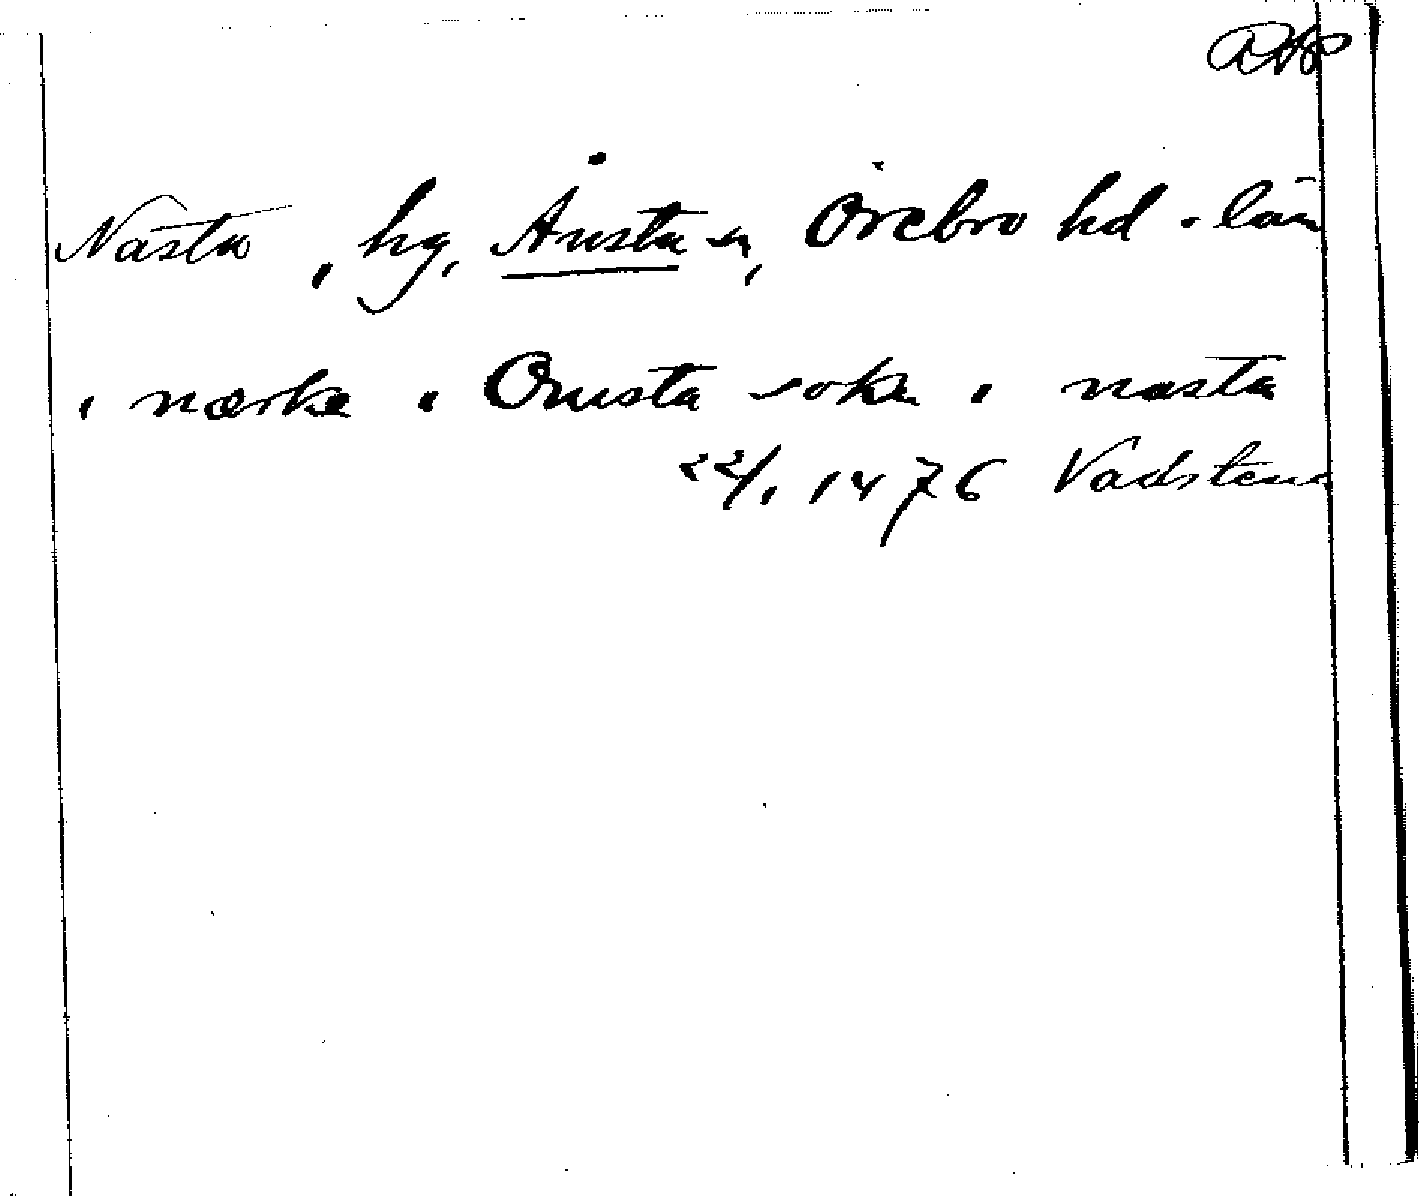 RAP
Nasta, hg, Ånsta sn, Örebro hd o. län
i nærke i Onusta sokn i nasta
22/1 1476 Vadstena